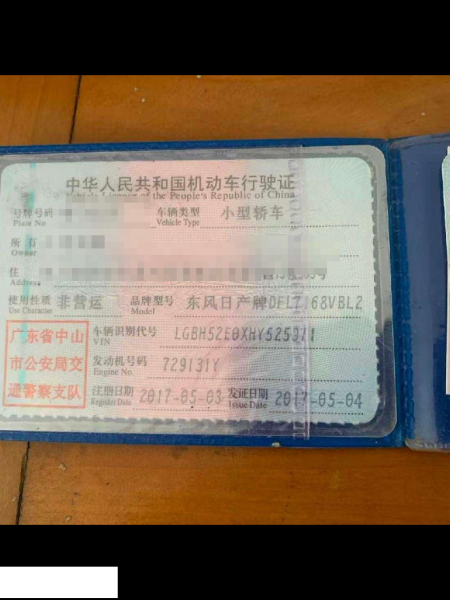 中华人民共和国机动车行驶证
Vehicle License of the People's Republic of China
号牌号码 车辆类型 小型轿车
Plate No. Vehicle Type
所有
Owner
住
Address
使用性质 非营运 品牌型号 东风日产牌DFL7168VBL2
Use Character Model
广东省中山 车辆识别代号
市公安局交 VIN
通警察支队 发动机号码 729131Y
Engine No.
注册日期 2017-05-03 发证日期 2017-05-04
Register Date Issue Date